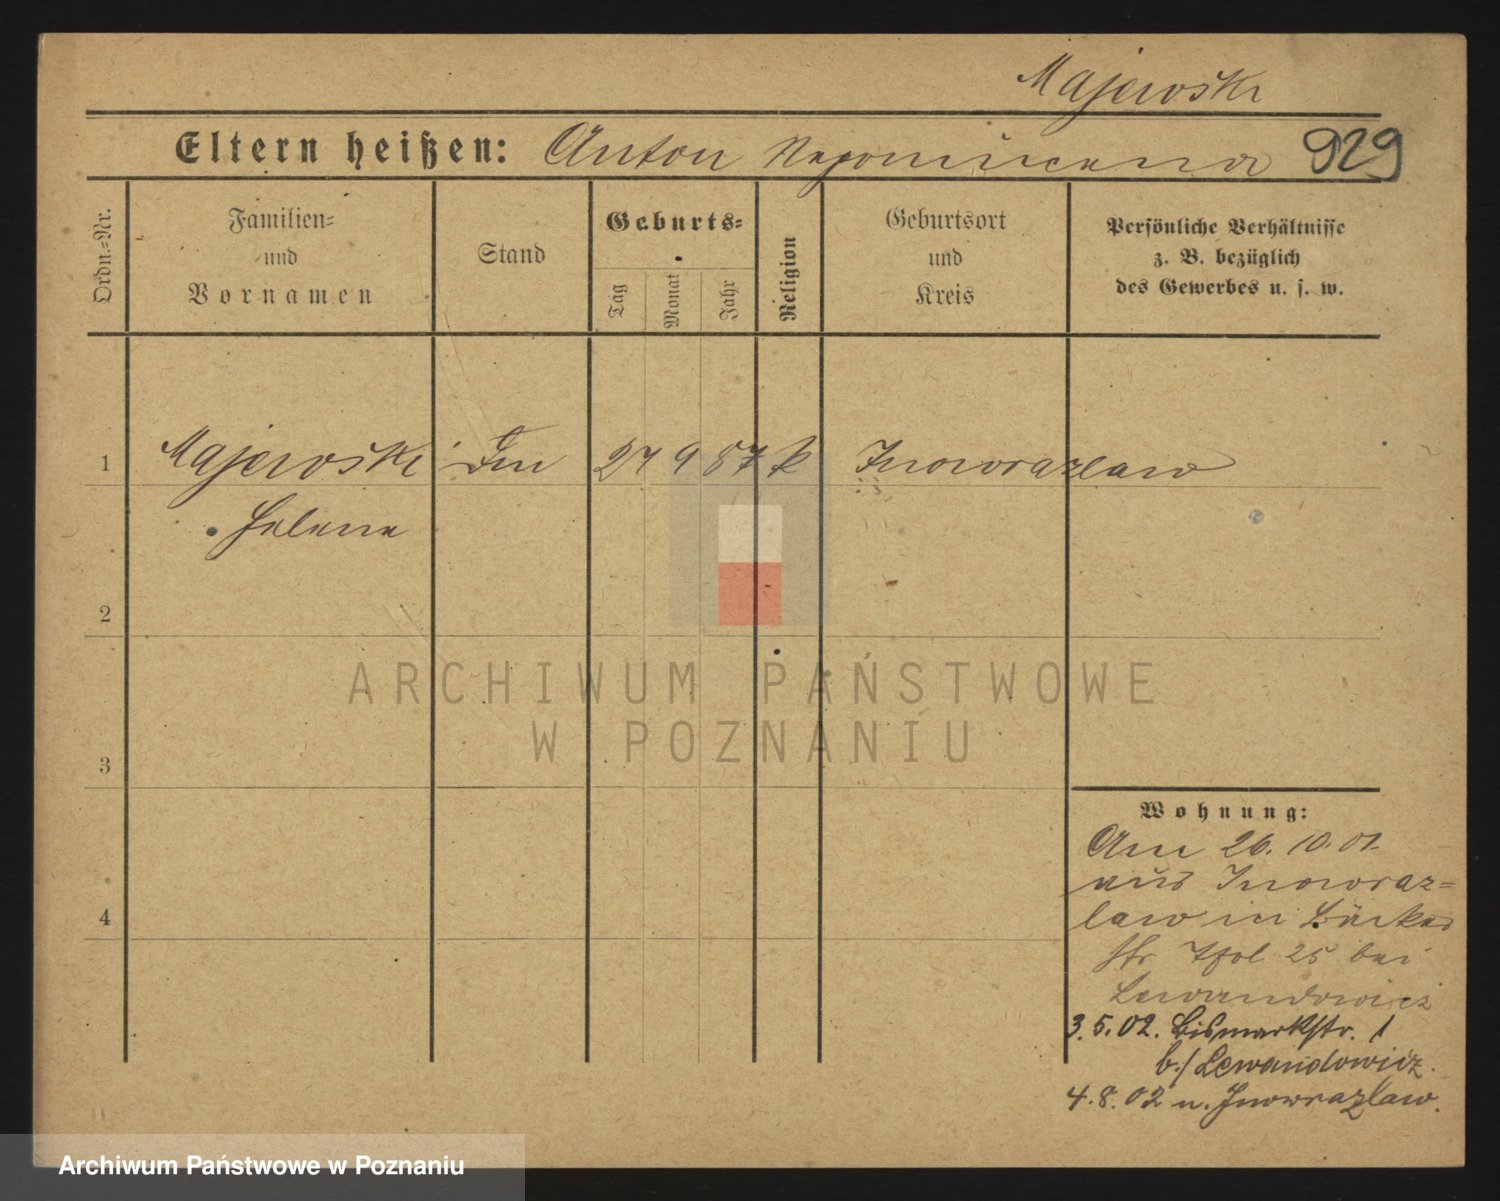 Majewski
Eltern heißen: Anton Nepomucena 929
Ordn.-Nr.
Familien-
und
Vornamen
Stand
Geburts-
Tag
Monat
Jahr
Religion
Geburtsort
und
Kreis
Persönliche Verhältnisse
z. B. bezüglich
des Gewerbes u. s. w.
1 Majewski 27 9 87 k Inowrazlaw
Helene
2
3
4
Wohnung:
Am 26. 10. 01.
aus Inowraz=
law in Bäcker
str 25 bei
Lewandowicz
3. 5. 02. Bismarkstr. 1
b./ Lewandowicz.
4. 8. 02 n. Inowrazlaw.
ARCHIWUM PAŃSTWOWE
W POZNANIU
Archiwum Państwowe w Poznaniu